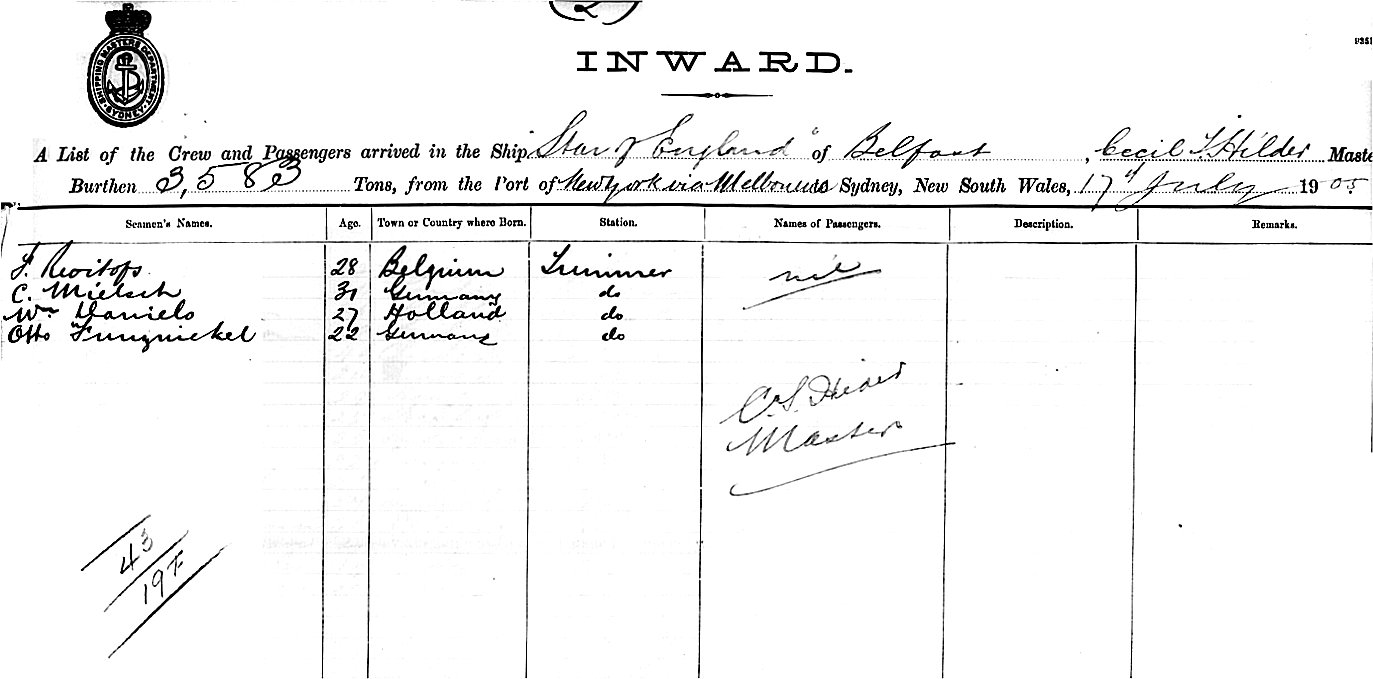 SHIPPING MASTERS DEPARTMENT SYDNEY
INWARD.
A List of the Crew and Passengers arrived in the Ship "Star of England" of Belfast, Cecil S. Hilder Maste
Burthen 3,583 Tons, from the Port of New York via Melbourne Sydney, New South Wales, 17th July 1905
Seamen's Names. Age. Town or Country where Born. Station. Names of Passengers. Description. Remarks.
F. 28 Belgium Trimmer nil
C. Mielsch 31 Germany do
Wm Daniels 27 Holland do
Otto 22 Germany do
C. S. Hilder
Master
43
19F